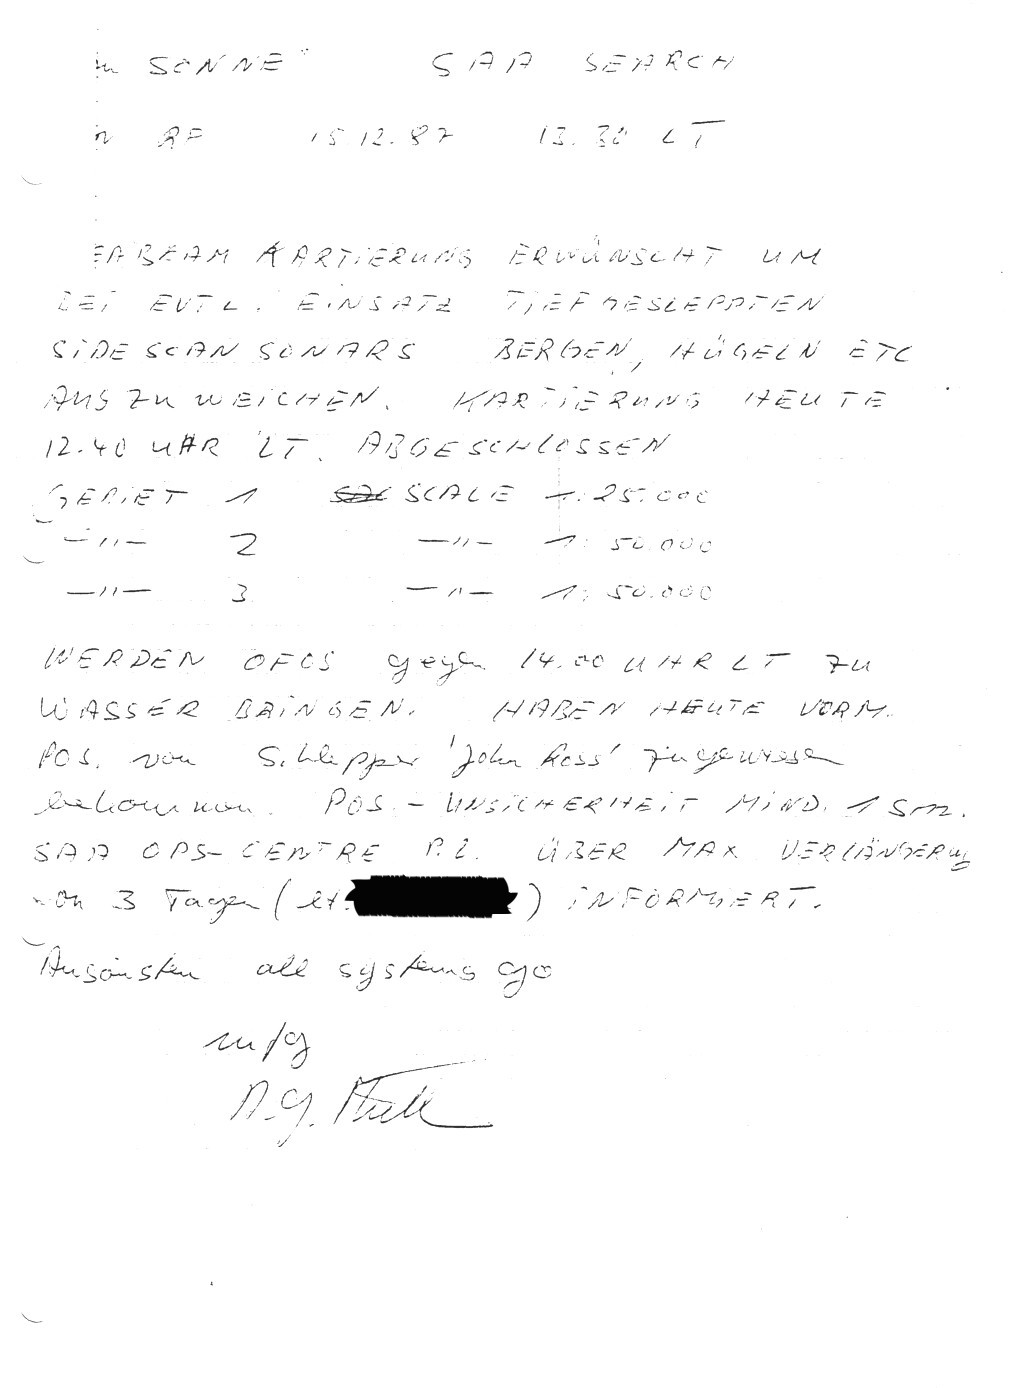 SONNE" SAA SEARCH
RF 15.12.87 13.30 LT
EABEAM KARTIERUNG ERWÜNSCHT UM
BEI EVTL. EINSATZ TIEFGESLEPPTEN
SIDE SCAN SONARS BERGEN, HÜGELN ETC
AUSZUWEICHEN. KARTIERUNG HEUTE
12.40 UHR LT. ABGESCHLOSSEN
GEBIET 1 SCALE 1:25.000
—"— 2 —"— 1:50.000
—"— 3 —"— 1:50.000
WERDEN OFOS gegen 14.00 UHR LT ZU
WASSER BRINGEN. HABEN HEUTE VORM.
POS. von Schlepper 'John Ross' zugewiesen
bekommen. POS.-UNSICHERHEIT MIND. 1 sm.
SAA OPS-CENTRE P.L. ÜBER MAX VERLÄNGERUNG
von 3 Tagen (lt. ) INFORMIERT.
Ansonsten all systems go
mfg